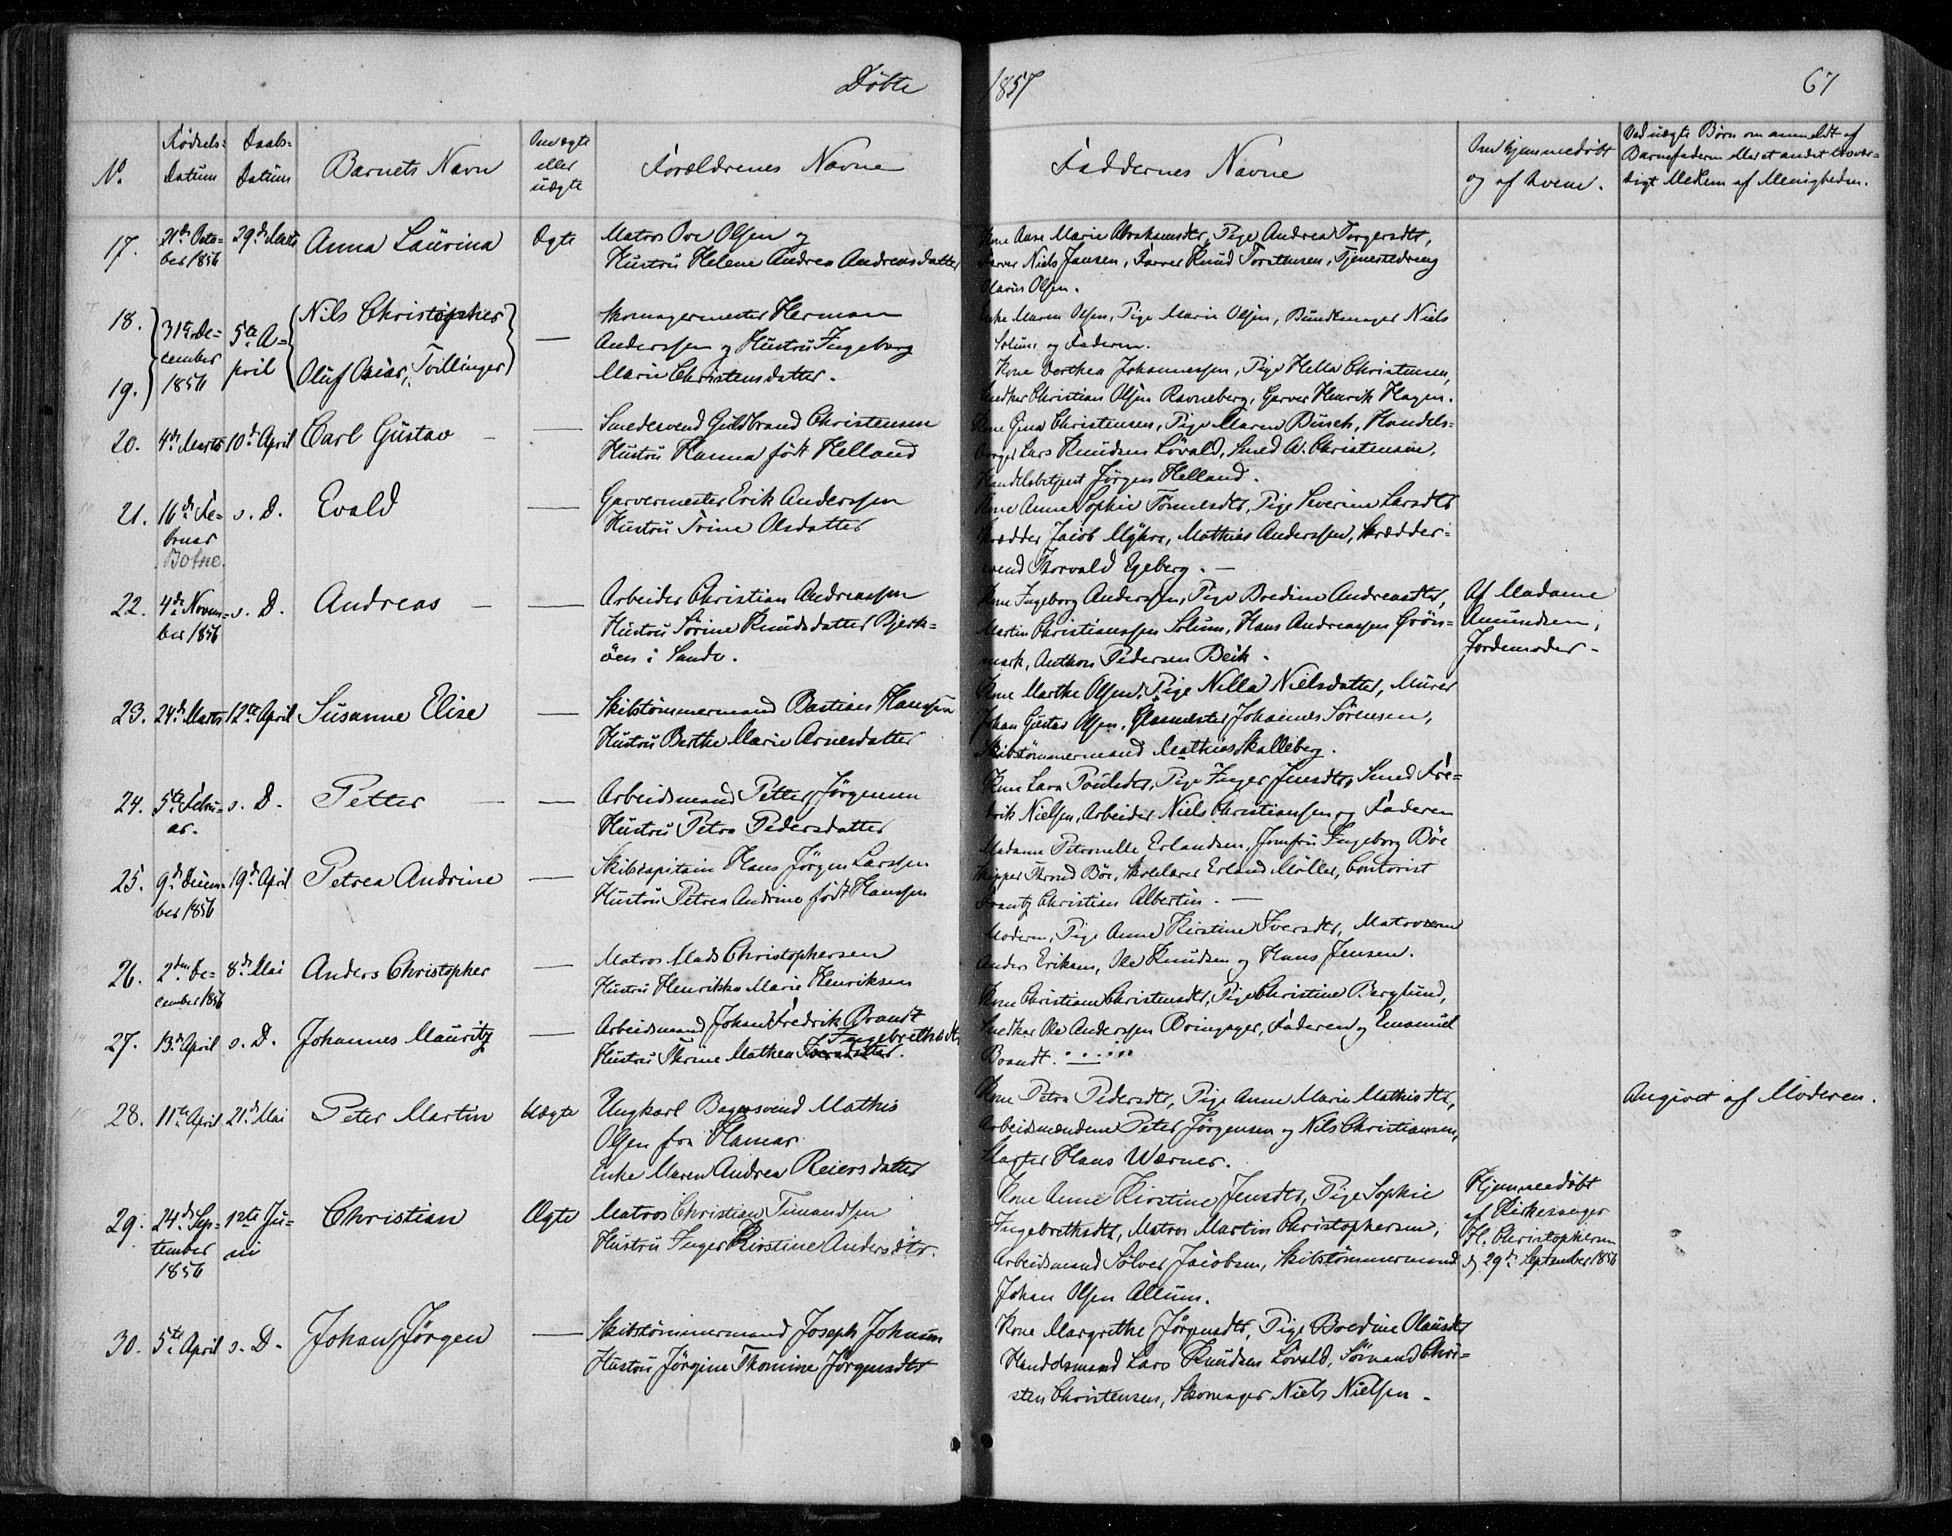 Døbte 1857 67
No. Fødsels- Datum Daabs- Datum Barnets Navn Om ægte eller uægte Forældrenes Navne Faddernes Navne Om hjemmedøbt og af hvem. Ved uægte Børn om anmeldt af Barnefaderen eller et andet troværdigt Medlem af Menigheden.
17. 21de Octo- 29de Marts Anna Laurina Ægte Matros Ove Olsen og
ber 1856 Hustru Helene Andrea Andreasdatter
Kone Anne Marie Abrahamsdtr, Pige Andrea Torgersdtr,
Farver Niels Jansen, Farver Knud Torstensen, Tjenestedreng
Marius Olsen.
18. 31te De- 5te A- Nils Christopher Skomagermester Herman
cember pril — Anderssen og Hustru Ingeborg
19. 1856 Oluf Oscar, Tvillinger Marie Christensdatter.
Enke Maren Olsen, Pige Marie Olsen, Bundtmager Niels
Solum og Faderen.
Kone Dorthea Johannessen, Pige Hella Christensen,
Snedker Christian Olsen Ravneberg, Garver Henrik Hagen.
20. 4de Marts 10de April Carl Gustav — Smedesvend Guldbrand Christensen
Hustru Hanna født Helland
Kone Gina Christensen, Pige Maren Busch, Handels-
borger Lars Knudsen Løvald, Smed A. Christensen,
Handelsbetjent Jørgen Helland.
21. 16de Fe- s. D. Evald — Garvermester Erik Anderssen
bruar Hustru Trine Olsdatter
Botne.
Kone Anne Sophie Tønnesdtr, Pige Severine Larsdtr
Skrædder Jacob Myhre, Mathias Anderssen, Skrædder-
svend Thorvald Egeberg. —
22. 4de Novem- s. D. Andreas — Arbeider Christian Andreassen
ber 1856 Hustru Sørine Knudsdatter Bjerk-
øen i Sande.
Kone Ingeborg Andersen, Pige Bredine Andreasdtr,
Martin Christianssen Solum, Hans Andreassen Grøn-
mark, Anthon Pedersen Beik.
Af Madame
Amundsen,
Jordemoder.
23. 24de Marts 12te April Susanne Elise — Skibstømmermand Bastian Hanssen
Hustru Berthe Marie Arnesdatter
Kone Marthe Olsen, Pige Nilla Nielsdatter, Murer
Johan Gustav Olsen, Glarmester Johannes Sørensen,
Skibstømmermand Mathias Skalleberg.
24. 5te Febru- s. D. Petter — Arbeidsmand Petter Jørgensen
ar. Hustru Petra Pedersdatter
Kone Lara Poulsdtr, Pige Inger Jensdtr, Smed Fre-
drik Nielsen, Arbeider Niels Christianssen og Faderen
25. 9de Decem- 19de April Petrea Andrine — Skibscapitain Hans Jørgen Larssen
ber 1856 Hustru Petrea Andrine født Hanssen
Madame Petronelle Erlandsen, Jomfru Ingeborg Bøe
Skipper Thrond Bøe, Skolelærer Erland Møller, Contorist
Frantz Christian Albertin. —
26. 2den De- 8de Mai Anders Christopher — Matros Mads Christophersen
cember 1856 Hustru Henrikke Marie Henriksen
Moderen, Pige Anne Kirstine Iversdtr, Matroserne
Anders Eriksen, Ole Knudsen og Hans Jensen.
27. 13de April s. D. Johannes Mauritz — Arbeidsmand Johan Fredrik Brandt
Hustru Thrine Mathea Iversdatter. Ingebrethsdtr
Kone Christiane Christensdtr, Pige Christine Berglund,
Snedker Ole Anderssen Bringager, Faderen og Emanuel
Brandt.
28. 11te April 21de Mai Peter Martin Uægte Ungkarl Bagersvend Mathis
Olsen fra Hamar.
Enke Maren Andrea Reiersdatter
Kone Petra Pedersdtr, Pige Anne Marie Mathisdtr,
Arbeidsmændene Peter Jørgensen og Nils Christiansen,
Hans Werner.
Angivet af Moderen.
29. 24de Sep- 1ste Ju- Christian Ægte Matros Christian Simonsen
tember ni Hustru Inger Kirstine Andersdtr.
1856
Kone Anne Kirstine Jensdtr, Pige Sophie
Ingebrethsdtr, Matros Martin Christophersen,
Arbeidsmand Sølver Jacobsen, Skibstømmermand
Johan Olsen Allum.
Hjemmedøbt
af Kirkesanger
H. Christophersen
d. 29de September 1856
30. 5te April s. D. Johan Jørgen — Skibstømmermand Joseph Johnsen
Hustru Jørgine Thomine Jørgensdtr
Kone Margrethe Jørgensdtr, Pige Bredine Olausdtr
Handelsmand Lars Knudsen Løvald, Sømand Chri-
sten Christensen, Skomager Niels Nielsen.